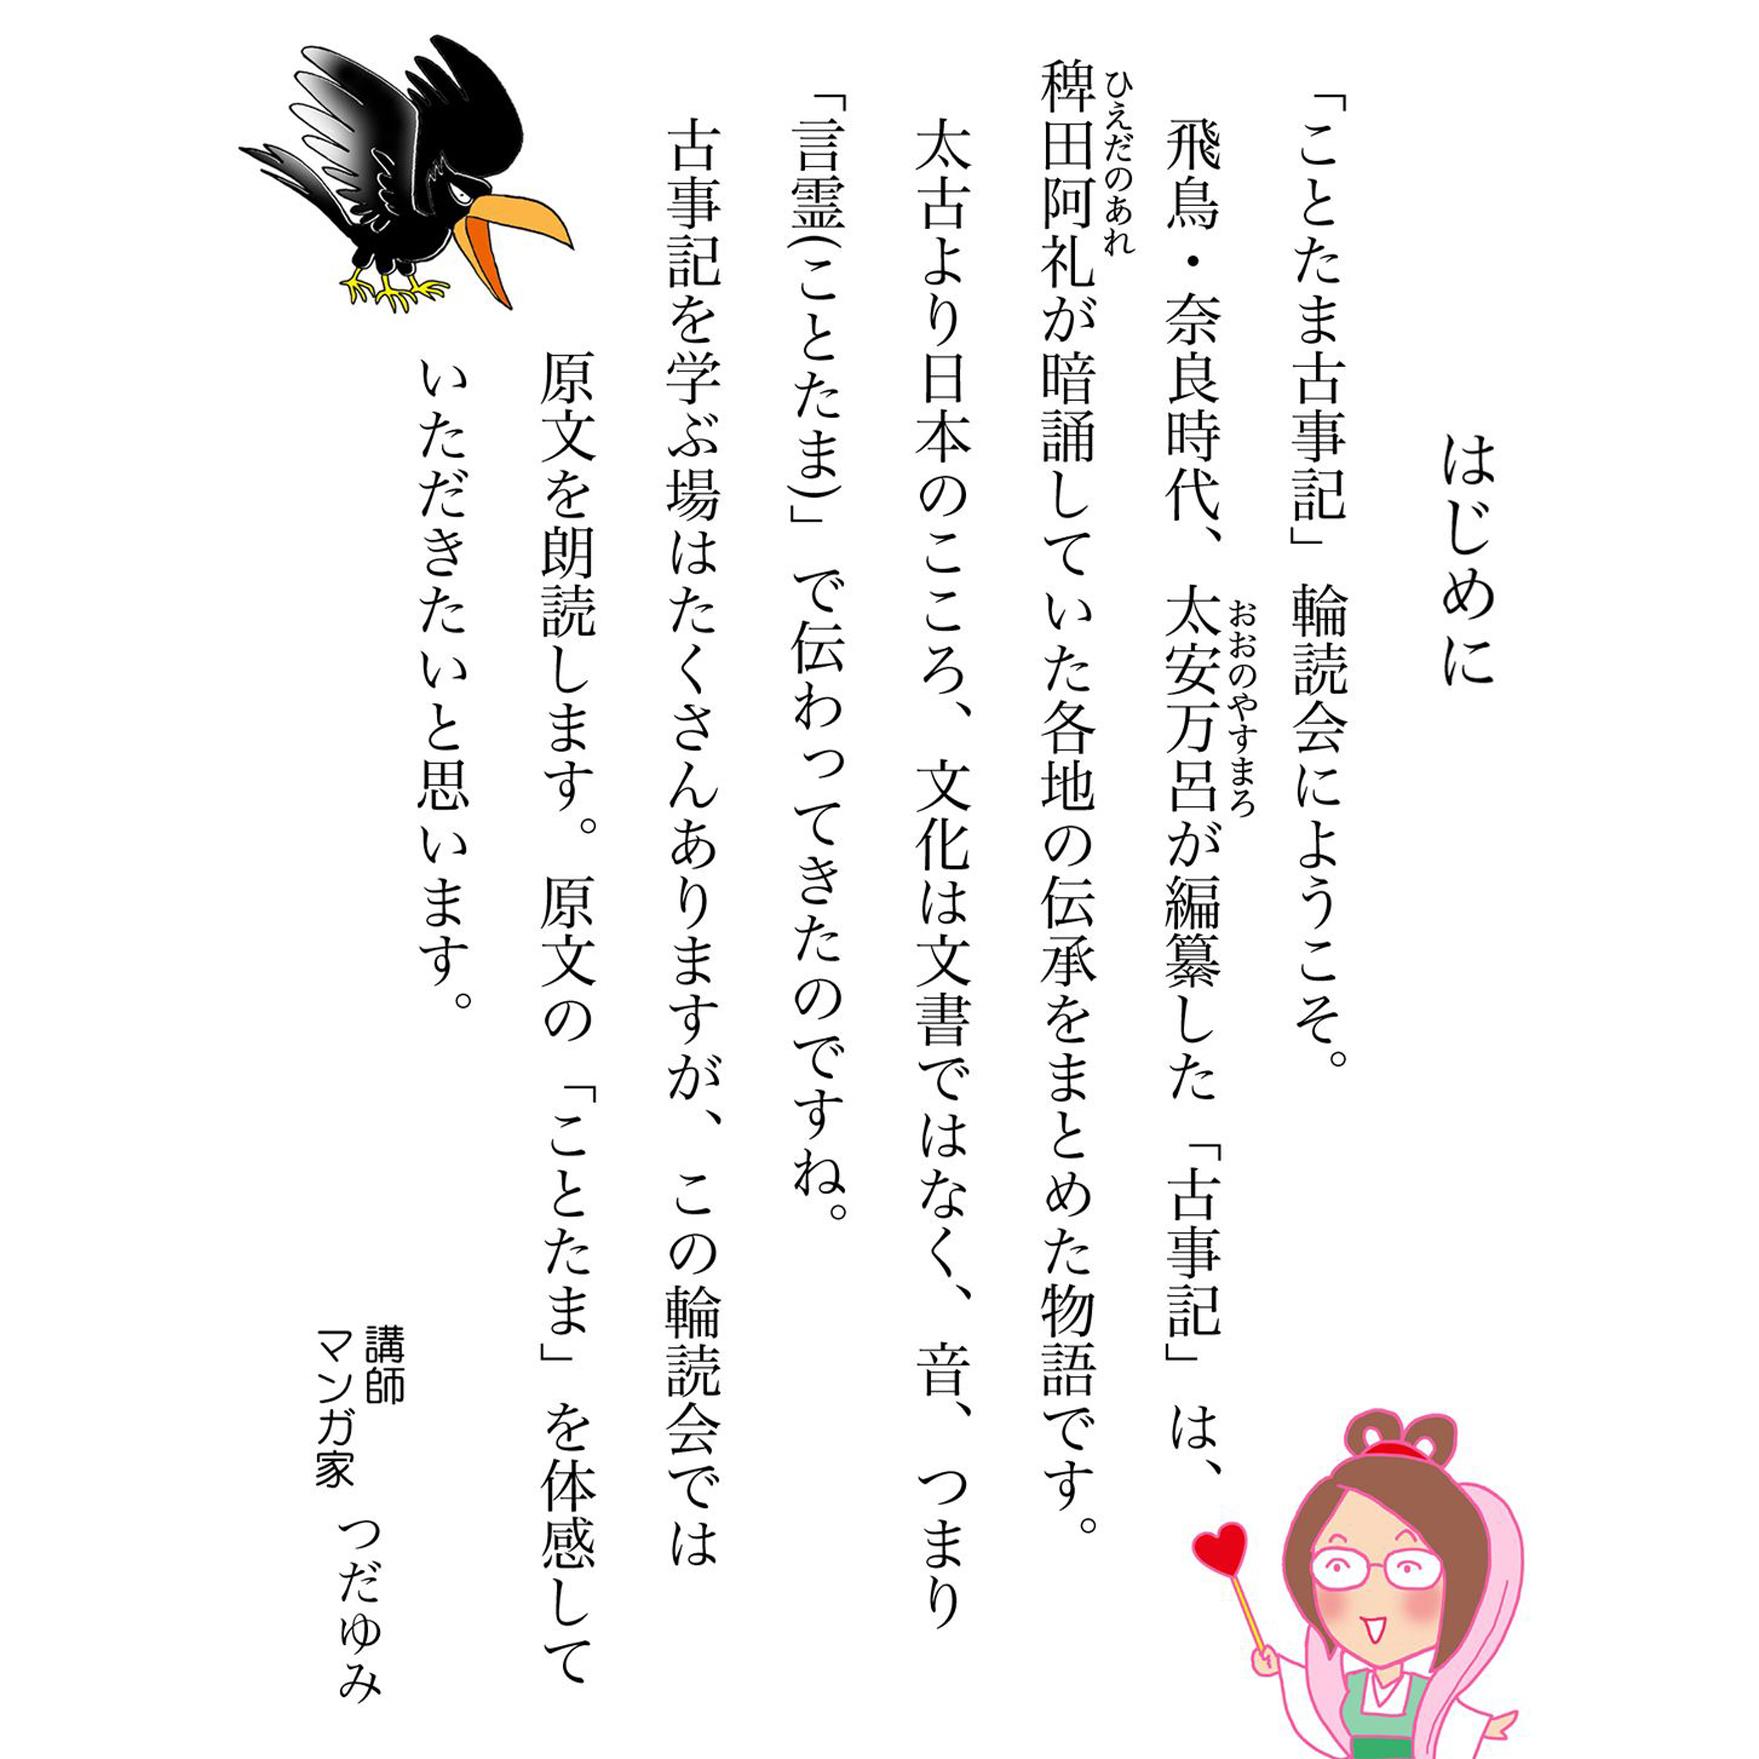 はじめに
「ことたま古事記」輪読会にようこそ。
飛鳥・奈良時代、太安万呂が編纂した「古事記」は、
おおのやすまろ
稗田阿礼が暗誦していた各地の伝承をまとめた物語です。
ひえだのあれ
太古より日本のこころ、文化は文書ではなく、音、つまり
「言霊(ことたま)」で伝わってきたのですね。
古事記を学ぶ場はたくさんありますが、この輪読会では
原文を朗読します。原文の「ことたま」を体感して
いただきたいと思います。
講師
マンガ家
つだゆみ